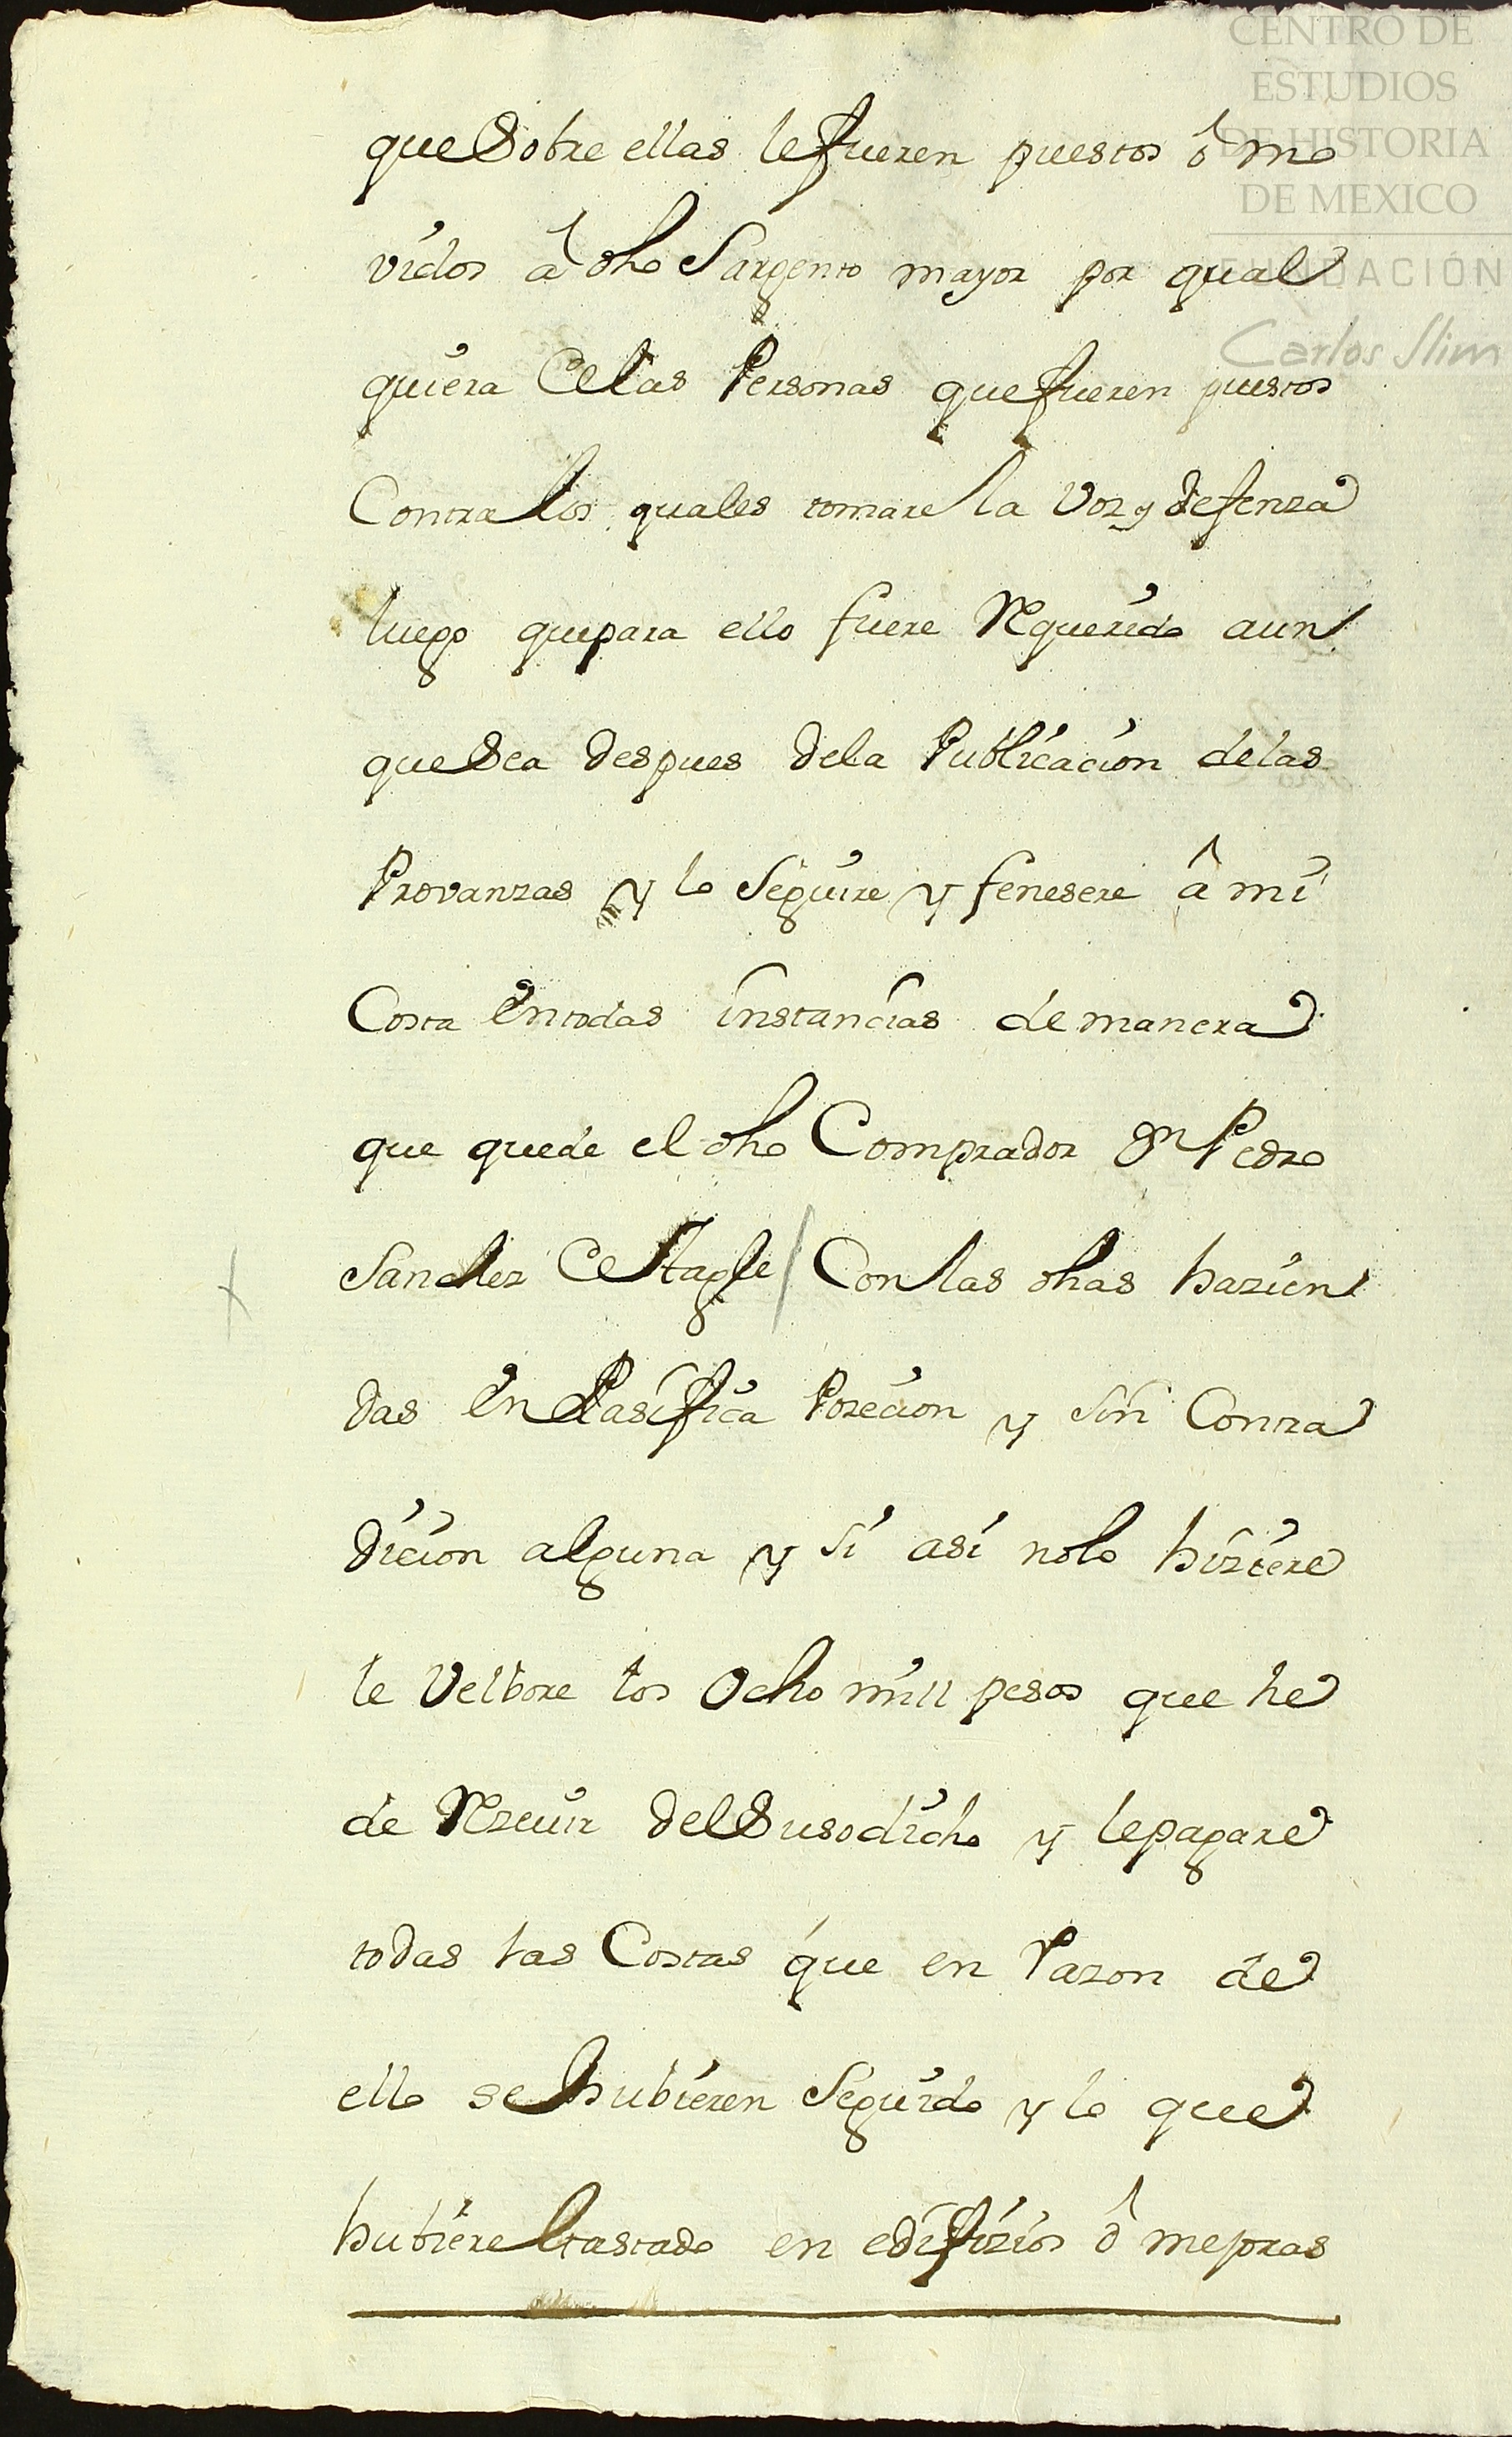 CENTRO DE
ESTUDIOS
DE HISTORIA
DE MEXICO
FUNDACIÓN
Carlos Slim
que Sobre ellas lefueren puestos ô mo
vidos â dho Sargento mayor por qual
quiera de las Personas quefueren puestos
Contra los quales tomare la Voz y defenza
luego quepara ello fuere Requerido aun
queSea despues dela Publicacion delas
Provanzas y lo Seguire y fenesere â mi
Costa En todas instancias demanera
que quede el dho Comprador Dn Pedro
Sanchez de Tagle / Con las dhas hazien
das En Pasifica Pozecion y sin Contra
dicion alguna y si asi nolo hiziere
le Volbore los Ocho mill pesos que he
de Rzeuir delSusodicho y lepagare
todas las Costas que en Razon de
ello se hubieren Seguido y lo que
hubiere Gastado en edifizios ô mejoras